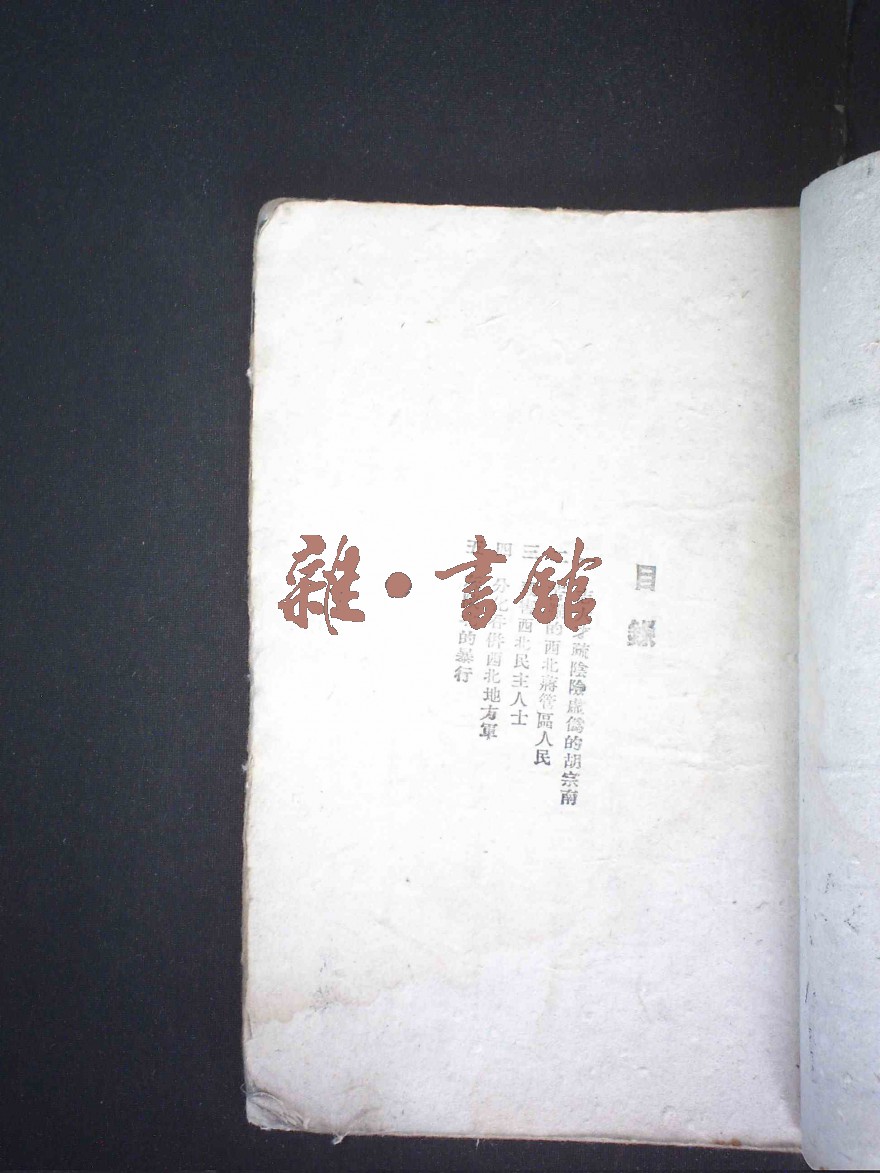 目錄
才疏陰險虛僞的胡宗南
的西北蔣管區人民
三 西北民主人士
四 分化吞併西北地方軍
五 的暴行
雜·書館